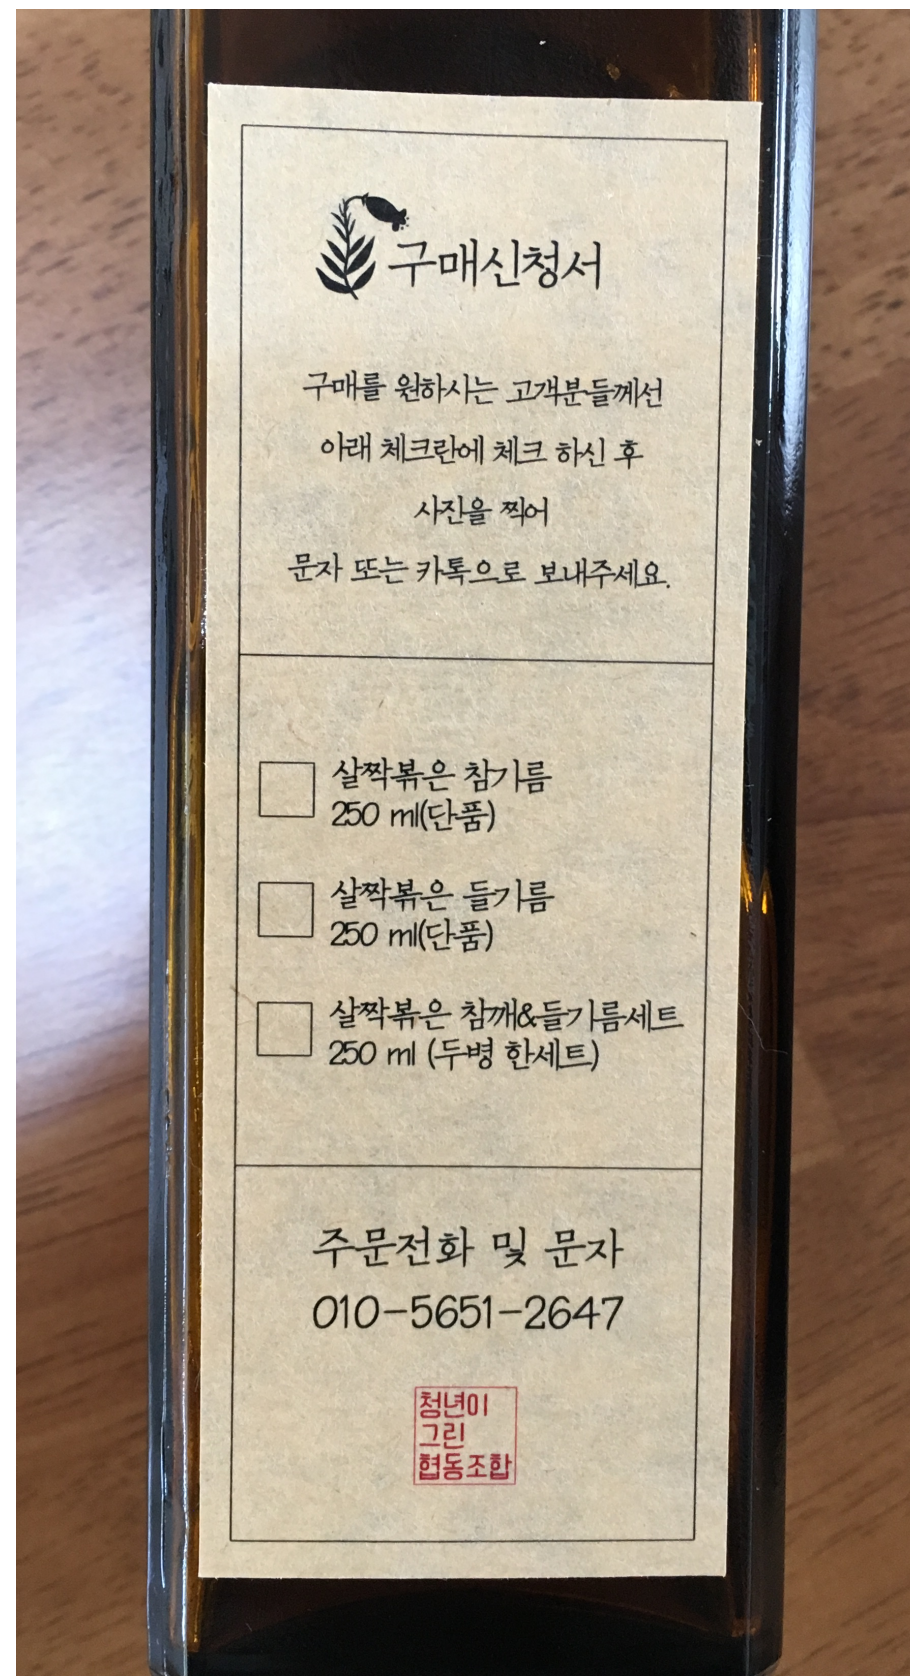 구매신청서
구매를 원하시는 고객분들께선
아래 체크란에 체크 하신 후
사진을 찍어
문자 또는 카톡으로 보내주세요.
살짝볶은 참기름
250 ml(단품)
살짝볶은 들기름
250 ml(단품)
살짝볶은 참깨&들기름세트
250 ml (두병 한세트)
주문전화 및 문자
010-5651-2647
청년이
그린
협동조합